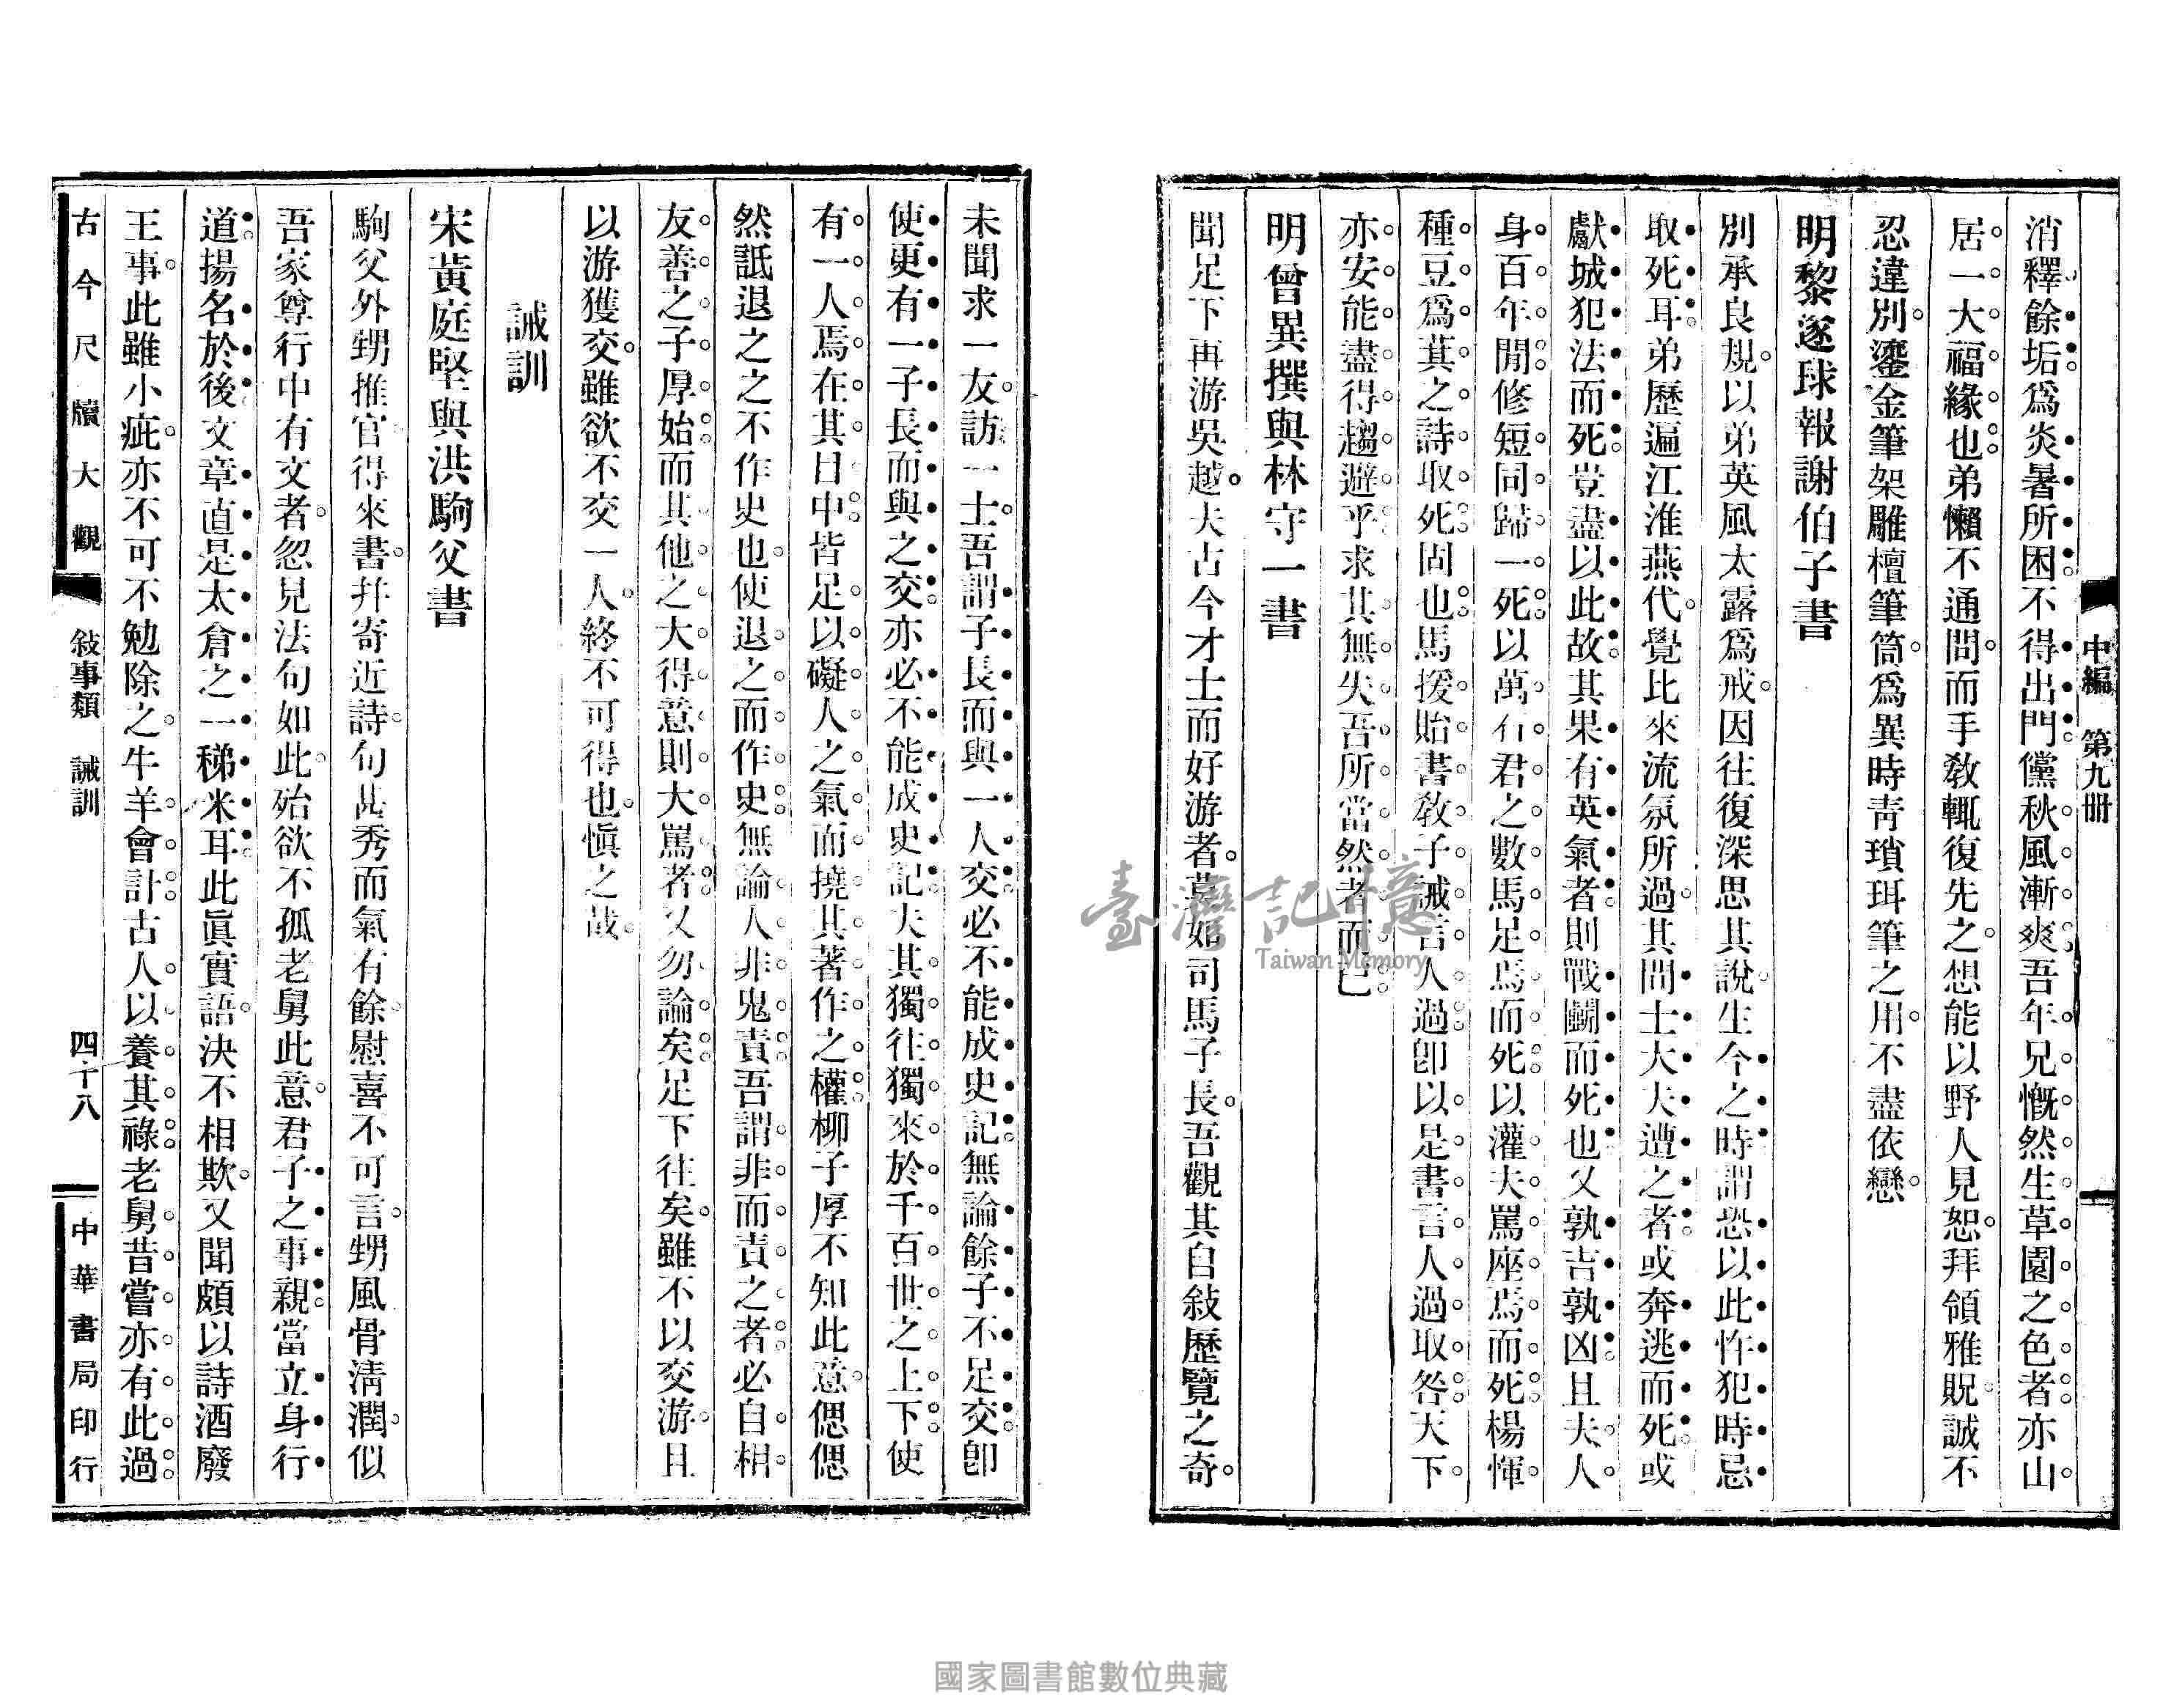 中編　第九冊
消釋餘垢爲炎暑所困不得出門儻秋風漸爽吾年兄慨然生草園之色者亦山
居一大福緣也弟懶不通問而手敎輒復先之想能以野人見恕拜領雅貺誠不
忍違別鎏金筆架雕檀筆筒爲異時靑瑣珥筆之用不盡依戀
明黎遂球報謝伯子書
別承良規以弟英風太露爲戒因往復深思其說生今之時謂恐以此忤犯時忌
取死耳弟歷遍江淮燕代覺比來流氛所過其間士大夫遭之者或奔逃而死或
獻城犯法而死豈盡以此故其果有英氣者則戰鬭而死也又孰吉孰凶且夫人
身百年閒修短同歸一死以萬石君之數馬足焉而死以灌夫罵座焉而死楊惲
種豆爲萁之詩取死固也馬援貽書敎子誡言人過卽以是書言人過取咎天下
亦安能盡得趨避乎求其無失吾所當然者而已
明曾異撰與林守一書
聞足下再游吳越夫古今才士而好游者莫如司馬子長吾觀其自敍歷覽之奇
未聞求一友訪一士吾謂子長而與一人交必不能成史記無論餘子不足交卽
使更有一子長而與之交亦必不能成史記夫其獨往獨來於千百世之上下使
有一人焉在其目中皆足以礙人之氣而撓其著作之權柳子厚不知此意偲偲
然詆退之之不作史也使退之而作史無論人非鬼責吾謂非而責之者必自相
友善之子厚始而其他之大得意則大罵者又勿論矣足下往矣雖不以交游且
以游獲交雖欲不交一人終不可得也愼之哉
誡訓
宋黃庭堅與洪駒父書
駒父外甥推官得來書幷寄近詩句甚秀而氣有餘慰喜不可言甥風骨淸潤似
吾家尊行中有文者忽見法句如此殆欲不孤老舅此意君子之事親當立身行
道揚名於後文章直是太倉之一稊米耳此眞實語決不相欺又聞頗以詩酒廢
王事此雖小疵亦不可不勉除之牛羊會計古人以養其祿老舅昔嘗亦有此過
古今尺牘大觀　敍事類　誡訓　四十八　中華書局印行
臺灣記憶
Taiwan Memory
國家圖書館數位典藏